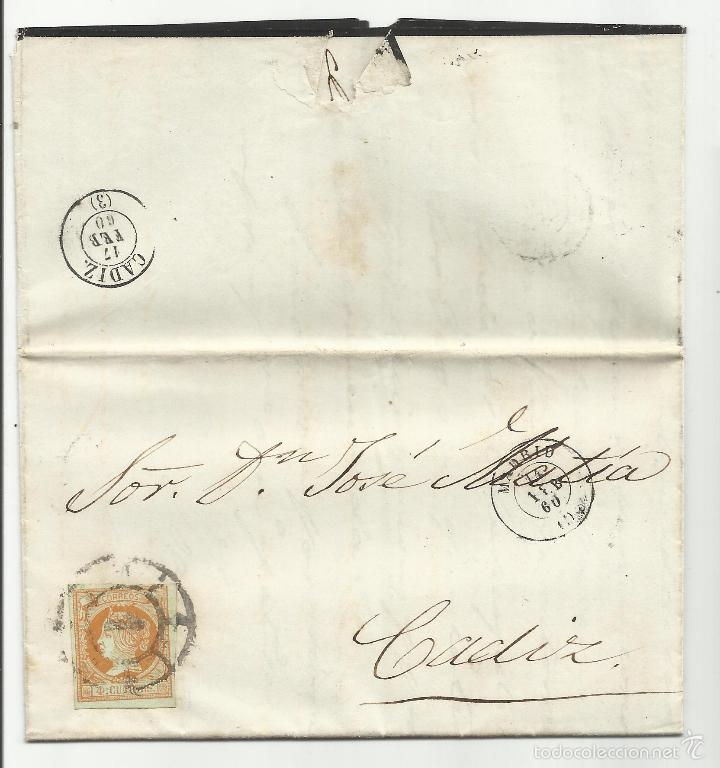 CADIZ.
17
FEB
60
(3)
Sōr. Dn José Matía
MADRID
FEB
60
(1)
CORREOS
4 CUARTOS
Cadiz.
todocoleccion.net